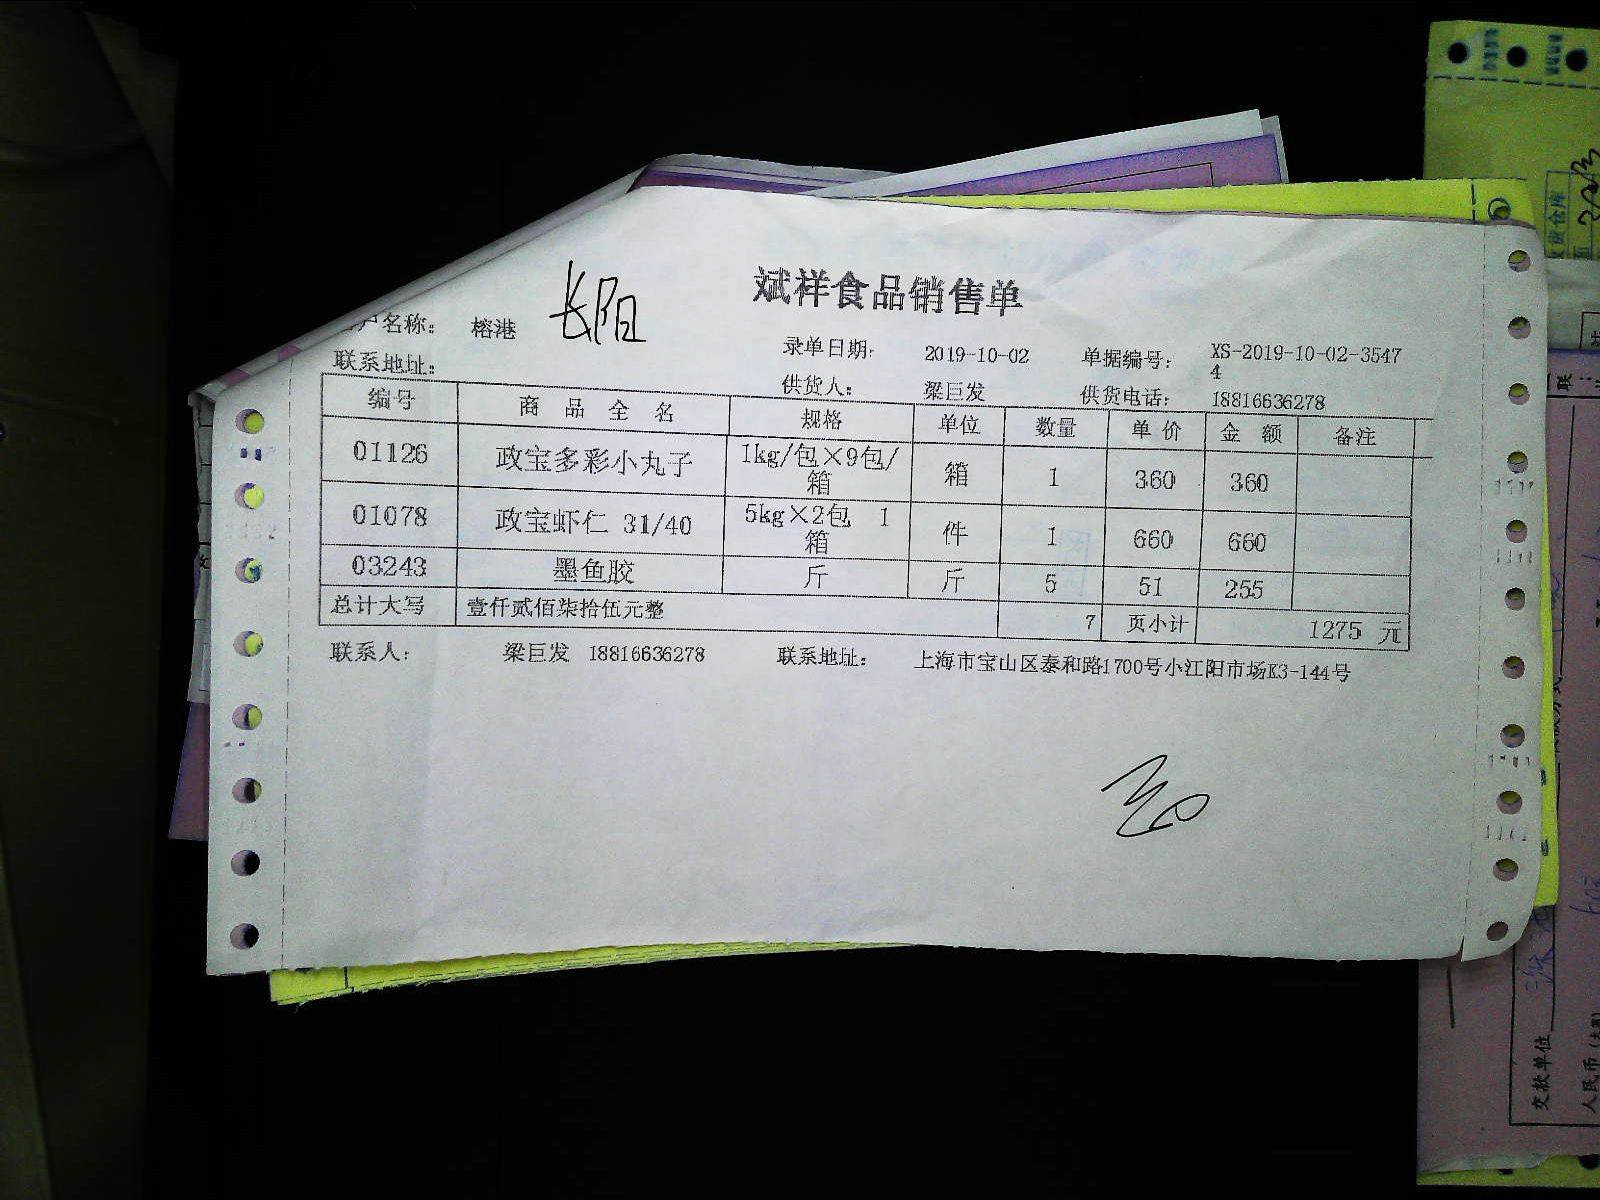 斌祥食品销售单
户名称： 榕港 长阳
录单日期： 2019-10-02 单据编号： XS-2019-10-02-35474
联系地址： 供货人： 梁巨发 供货电话： 18816636278
编号 商品全名 规格 单位 数量 单价 金额 备注
01126 政宝多彩小丸子 1kg/包×9包/箱 箱 1 360 360
01078 政宝虾仁 31/40 5kg×2包 1箱 件 1 660 660
03243 墨鱼胶 斤 斤 5 51 255
总计大写 壹仟贰佰柒拾伍元整 7 页小计 1275 元
联系人： 梁巨发 18816636278 联系地址： 上海市宝山区泰和路1700号小江阳市场K3-144号
交款单位
人民币